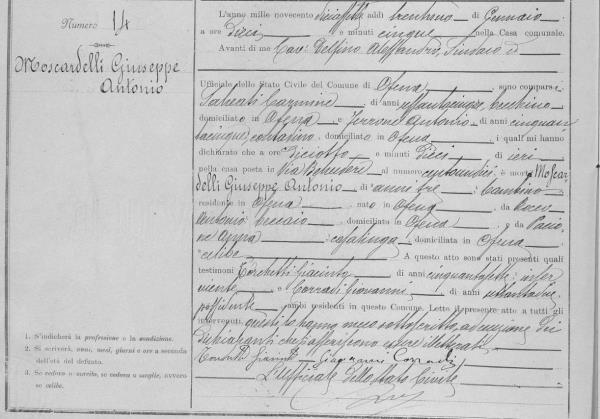 Numero 14
Moscardelli Giuseppe
Antonio
L'anno mille novecento diciassette addì trentuno di Gennaio,
a ore dieci e minuti cinque, nella Casa comunale.
Avanti di me Cav. Delfino Alessandro, Sindaco
Ufficiale dello Stato Civile del Comune di Ofena, sono comparsi
Carmine, di anni
domiciliato in Ofena e Antonio di anni cinquan
tacinque, contadino domiciliato in Ofena, i quali mi hanno
dichiarato che a ore diciotto e minuti dieci di ieri,
nella casa posta in Via al numero centundici, è morto Moscar
delli Giuseppe Antonio di anni tre, bambino
residente in Ofena, nato in Ofena, da Rocco
Antonio, domiciliato in Ofena, e da
Anna, casalinga domiciliata in Ofena,
celibe. A questo atto sono stati presenti quali
testimoni Giacinto di anni cinquantasette, inser
viente e Corradi Giovanni, di anni
possidente, ambi residenti in questo Comune. Letto il presente atto a tutti gli
intervenuti, questi lo hanno meco sottoscritto, ad eccezione dei
dichiaranti che asseriscono essere illetterati.
Giovanni Corradi
L'Ufficiale dello Stato Civile
1. S'indicherà la professione o la condizione.
2. Si scriverà, anno, mesi, giorni o ore a seconda
dell'età del defunto.
3. Se vedovo o marito, se vedova o moglie, ovvero
se celibe.